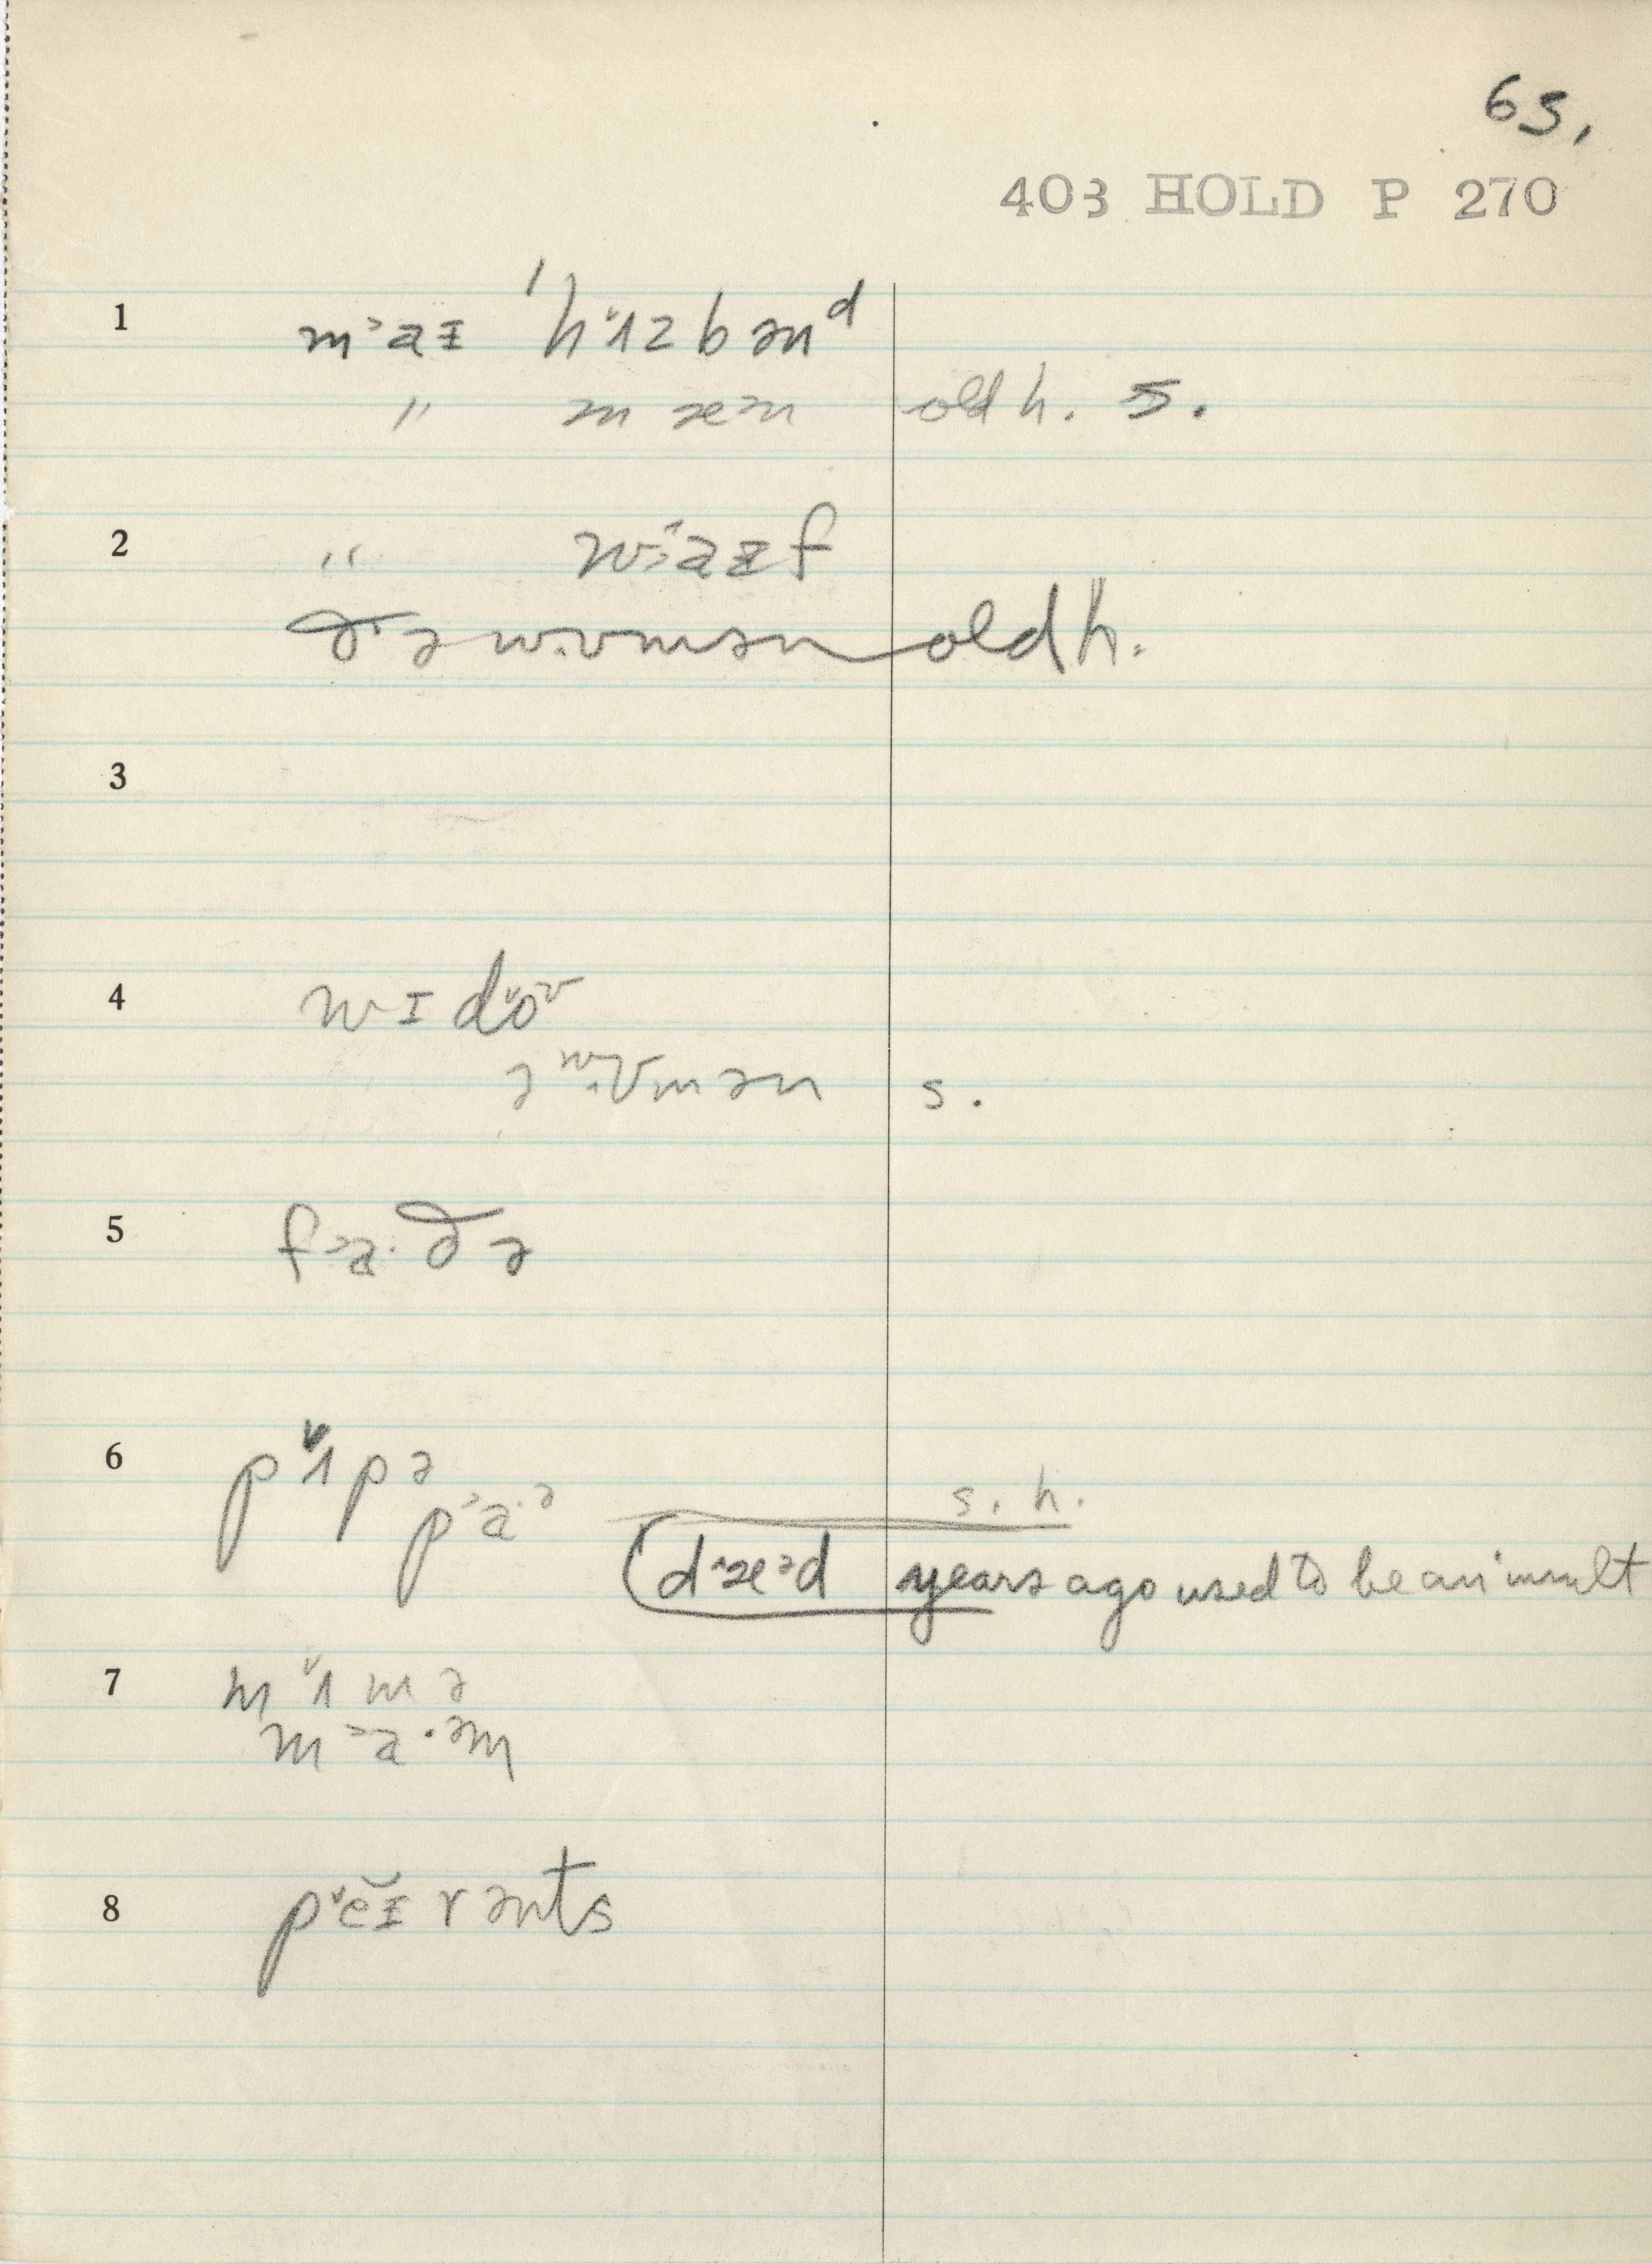 65.
403 HOLD P 270
1 m˃aɪ 'hʌ˅zbənᵈ
" mæn old h. s.
2 " w˃aɪf
ðə wʊmən old h.
3
4 wɪdo˅ᶷ
ə wʊmən s.
5 f˃a·ðə
6 pʌ˅pə
p˃a·ᵊ s. h.
dæ˃d years ago used to be an insult
7 mʌ˅mə
m˃a·əm
8 p˅ĕɪrənts